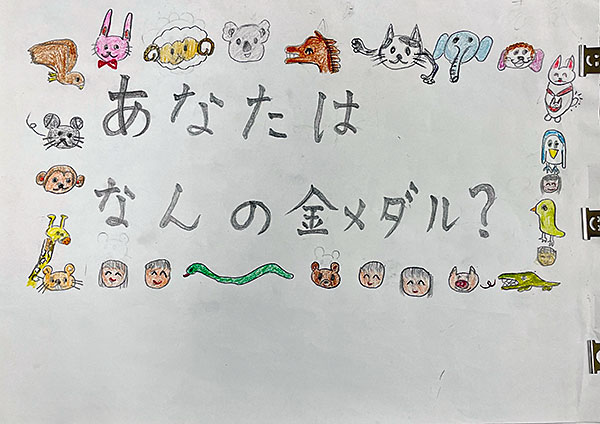 あなたは
なんの金メダル?